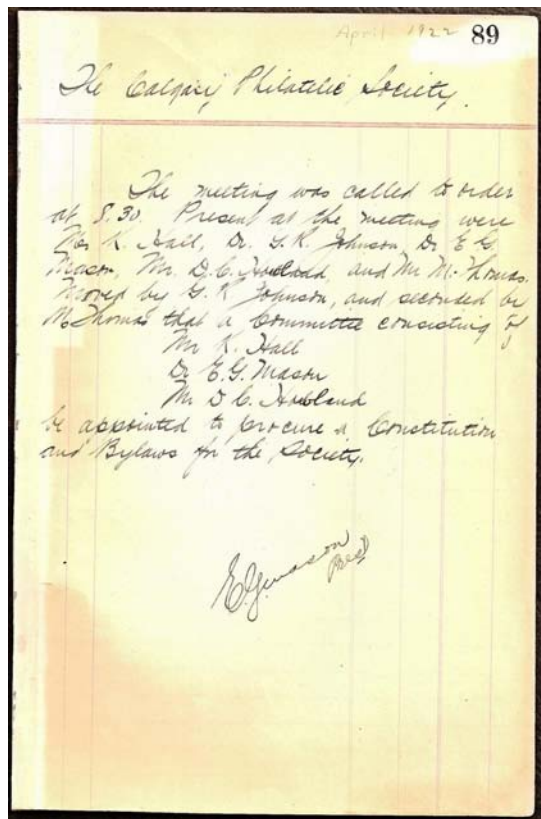 April 1922 89
The Calgary Philatelic Society.
The meeting was called to order
at 8.30. Present at the meeting were
Mr K. Hall, Dr. G.R. Johnson, Dr E G.
Mason, Mr. D.C. Howland, and Mr M. Thomas.
Moved by G. R Johnson, and seconded by
M Thomas that a Committee consisting of
Mr K. Hall
Dr E.G. Mason
Mr D C. Howland
be appointed to procure a Constitution
and Bylaws for the Society.
E.G. Mason
Pres